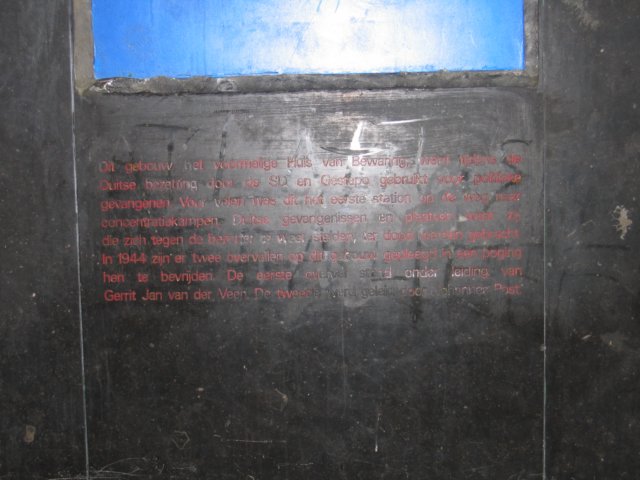 Dit gebouw, het voormalige Huis van Bewaring, werd tijdens de
Duitse bezetting door de SD en Gestapo gebruikt voor politieke
gevangenen. Voor velen was dit het eerste station op de weg naar
concentratiekampen, Duitse gevangenissen en plaatsen waar zij
die zich tegen de bezetter te weer stelden, ter dood werden gebracht.
In 1944 zijn er twee overvallen op dit gebouw gepleegd in een poging
hen te bevrijden. De eerste overval stond onder leiding van
Gerrit Jan van der Veen. De tweede werd geleid door Johannes Post.